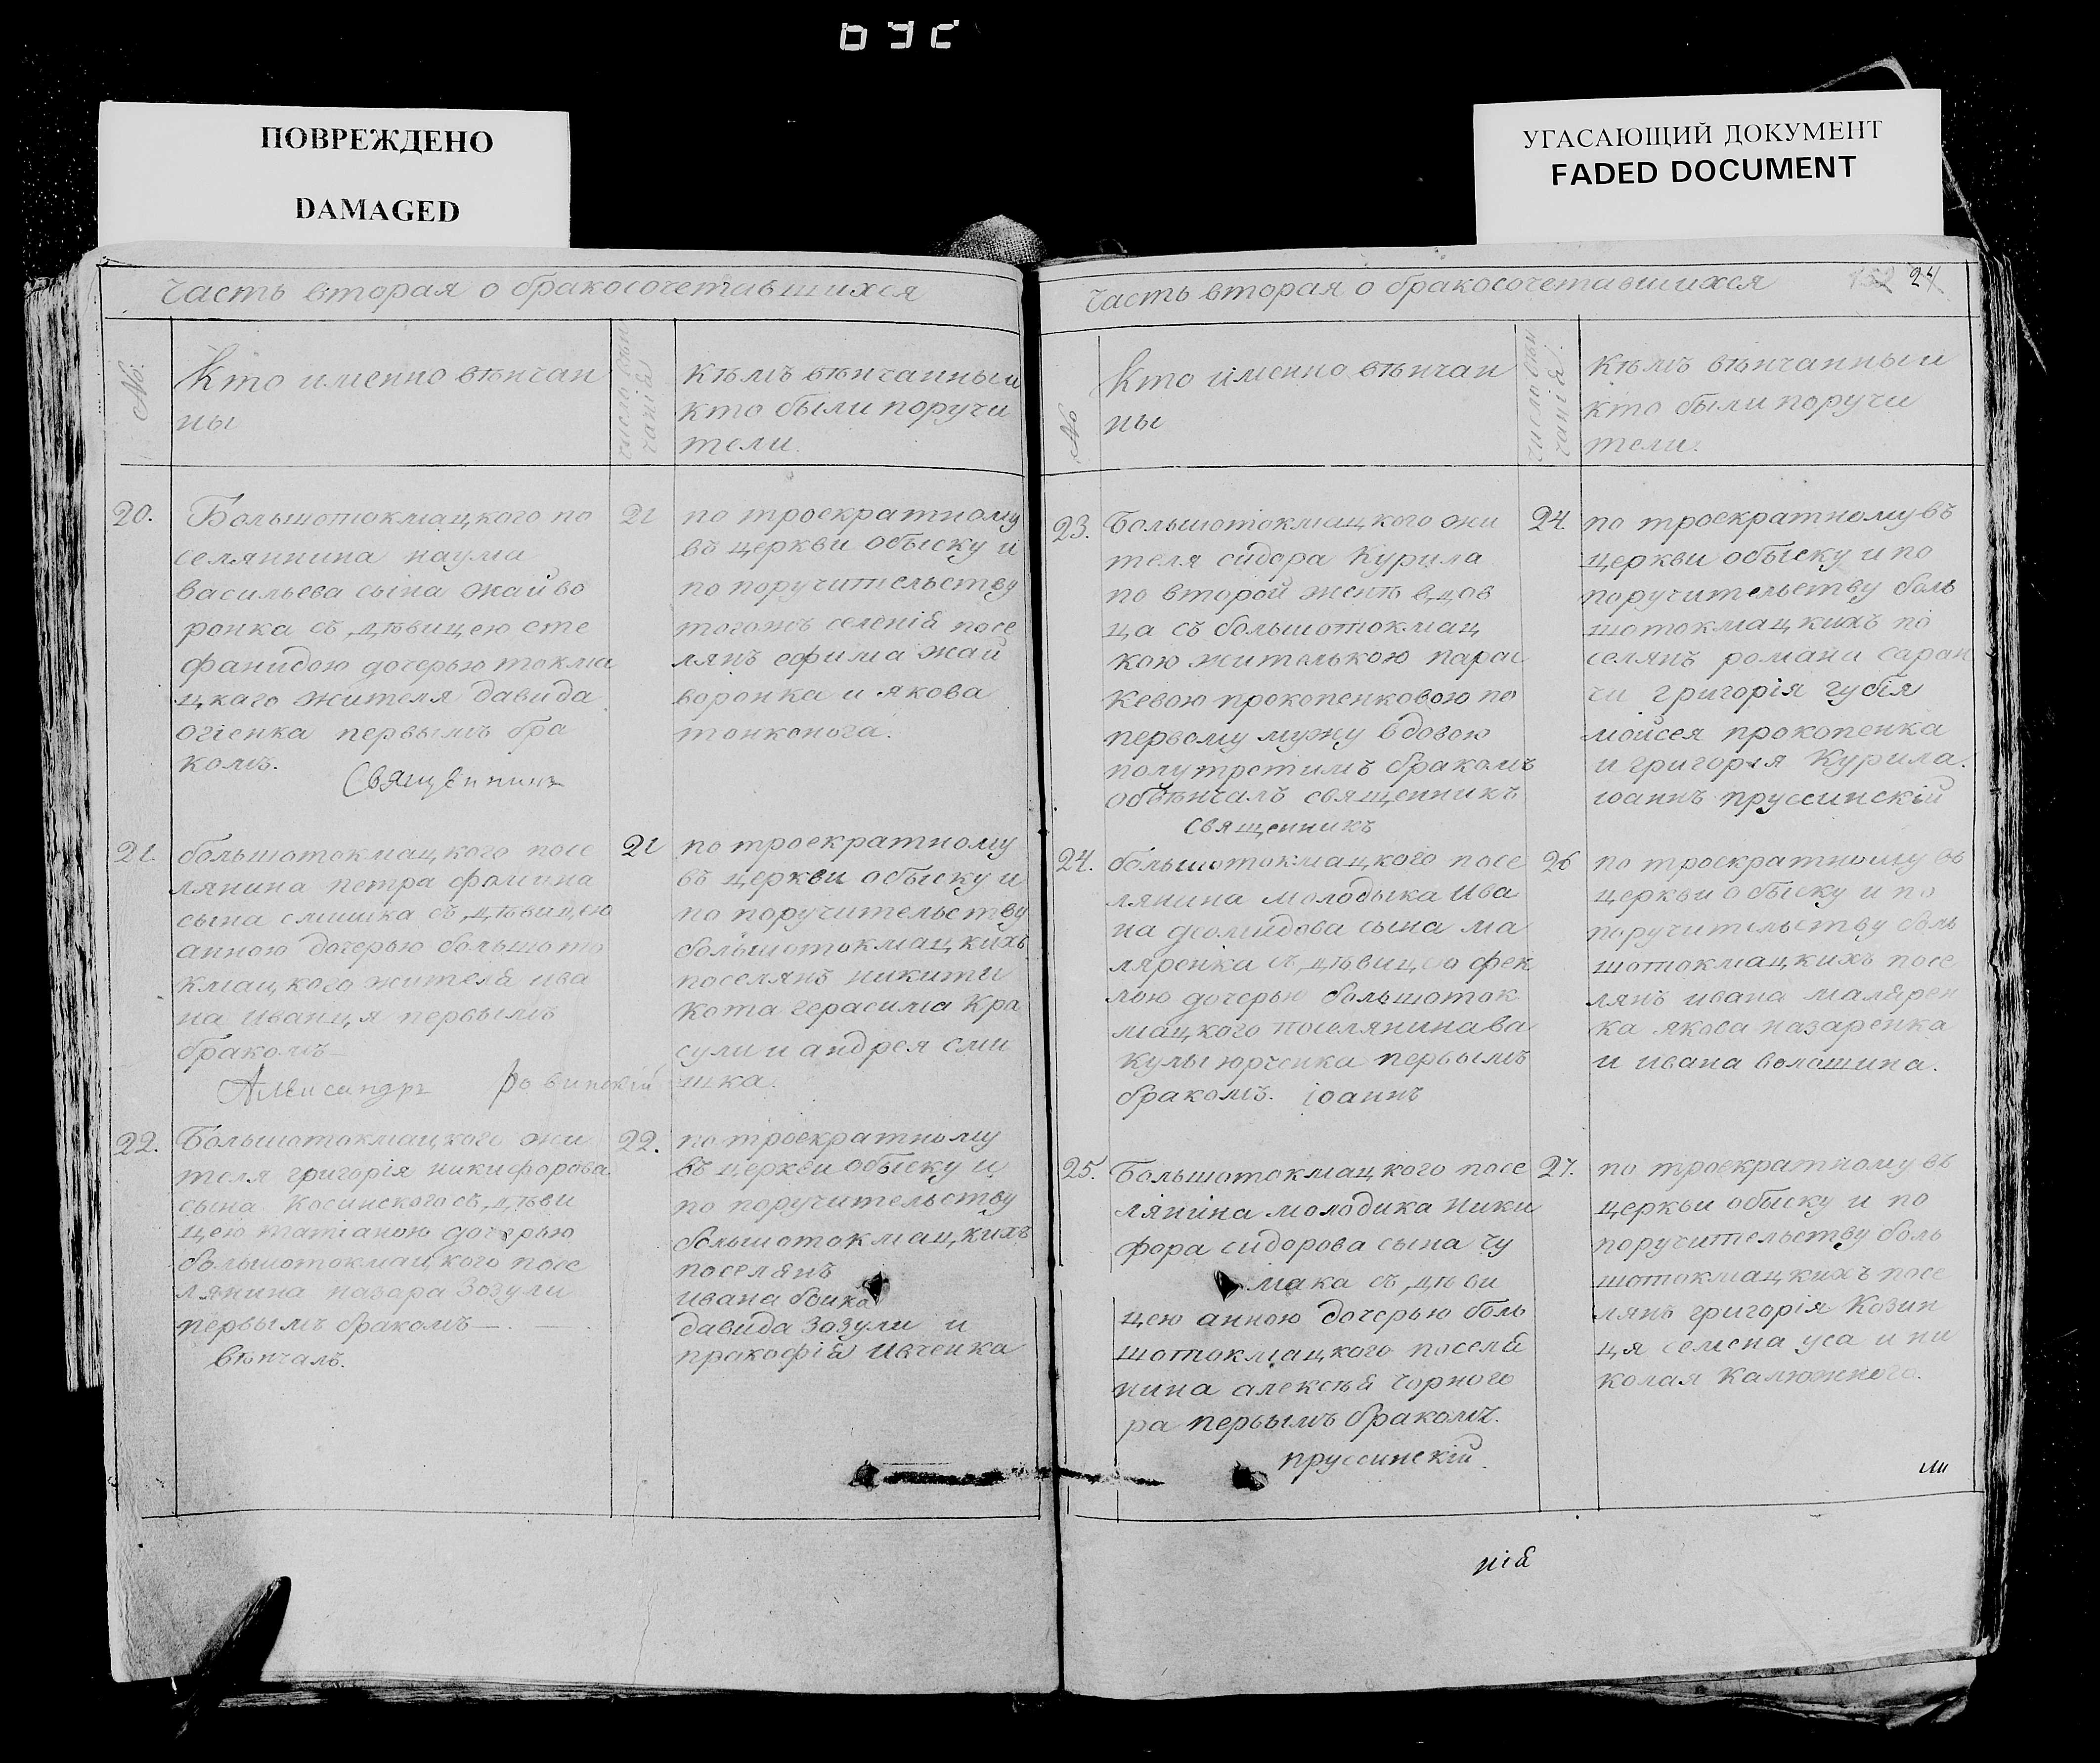 ПОВРЕЖДЕНО
DAMAGED
УГАСАЮЩИЙ ДОКУМЕНТ
FADED DOCUMENT
Часть вторая о бракосочетавшихся
№:
Кто именно вѣнчан
ны
число вѣн
чанія
кѣмъ вѣнчанны и
кто были поручи
тели.
20.
Большотокмацкого по
селяннина наума
васильева сына жайво
ронка съ дѣвицею сте
фанидою дочерью токма
цкаго жителя давида
огіенка первымъ бра
комъ.
Священникъ
21
по троекратному
въ церкви обыску и
по поручительству
тогожъ селенія посе
лянъ ефима жай
воронка и якова
тонконога.
21.
большотокмацкого посе
лянина петра фомина
сына смишка съ дѣвицею
анною дочерью большото
кмацкого жителя ива
на иванця первымъ
бракомъ
Александръ
21
по троекратному
въ церкви обыску и
по поручительству
большотокмацкихъ
поселянъ никиты
кота герасима кра
сули и андрея сми
шка.
22.
Большотокмацкого жи
теля григорія никифорова
сына Косинского съ дѣви
цею татіаною дочерью
большотокмацкого посе
лянина назара Зозули
первымъ бракомъ —. —.
вѣнчалъ.
22.
по троекратному
въ церкви обыску и
по поручительству
большотокмацкихъ
поселянъ
ивана бойка
давида Зозули и
прокофія ивченка
Часть вторая о бракосочетавшихся
24
№
Кто именно вѣнчан
ны
число вѣн
чанія.
кѣмъ вѣнчанны и
кто были поручи
тели.
23.
Большотокмацкого жи
теля сидора Курила
по второй женѣ вдов
ца съ большотокмац
кою жителькою парас
кевою прокопенковою по
первому мужу вдовою
полутретимъ бракомъ
обвѣнчалъ священникъ
священникъ
24.
по троекратному въ
церкви обыску и по
поручительству боль
шотокмацкихъ по
селянъ романа саран
чи григорія губія
мойсея прокопенка
и григорія Курила.
іоаннъ пруссинскій
24.
большотокмацкого посе
лянина молодыка ива
на деомидова сына ма
ляренка съ дѣвицею фек
лою дочерью большоток
мацкого поселянина ва
кулы юрченка первымъ
бракомъ. іоаннъ
26
по троекратному въ
церкви обыску и по
поручительству боль
шотокмацкихъ посе
лянъ ивана малярен
ка якова назаренка
и ивана волошина.
25.
Большотокмацкого посе
лянина молодика ники
фора сидорова сына чу
мака съ дѣви
цею анною дочерью боль
шотокмацкого поселя
нина алексѣя чорного
ра первымъ бракомъ.
пруссинскій
27.
по троекратному въ
церкви обыску и по
поручительству боль
шотокмацкихъ посе
лянъ григорія Козин
ця семена уса и ни
колая Калюжного.
нія